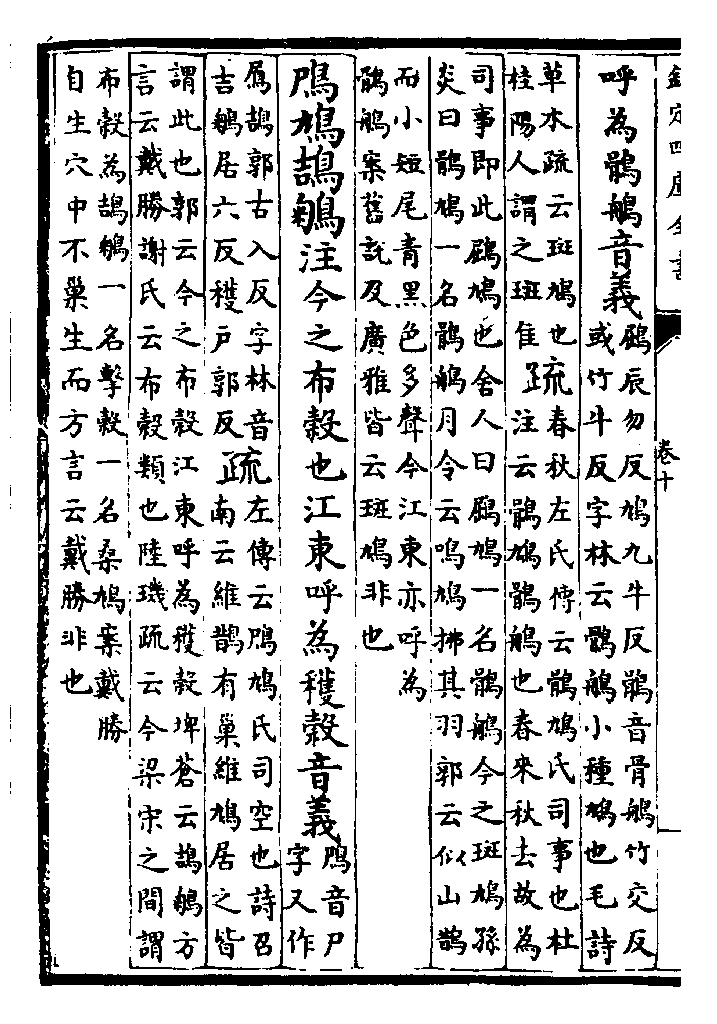 欽定四庫全書
卷十
呼為鶻鵃音義
鶌辰勿反鳩九牛反鶻音骨鵃竹交反
或竹牛反字林云鶻鵃小種鳩也毛詩
草木疏云斑鳩也
桂陽人謂之斑隹
疏
春秋左氏傳云鶻鳩氏司事也杜
注云鶻鳩鶻鵃也春來秋去故為
司事即此鶌鳩也舍人曰鶌鳩一名鶻鵃今之斑鳩孫
炎曰鶻鳩一名鶻鵃月令云鳴鳩拂其羽郭云似山鵲
而小短尾青黑色多聲今江東亦呼為
鶻鵃案舊說及廣雅皆云斑鳩非也
鳲鳩鴶鵴注今之布穀也江東呼為穫穀音義
鳲音尸
字又作
鴶郭古入反字林音
吉鵴居六反穫户郭反
疏
左傳云鳲鳩氏司空也詩召
南云維鵲有巢維鳩居之皆
謂此也郭云今之布穀江東呼為穫穀埤蒼云鴶鵴方
言云戴勝謝氏云布穀類也陸璣疏云今梁宋之間謂
布穀為鴶鵴一名擊穀一名桑鳩案戴勝
自生穴中不巢生而方言云戴勝非也